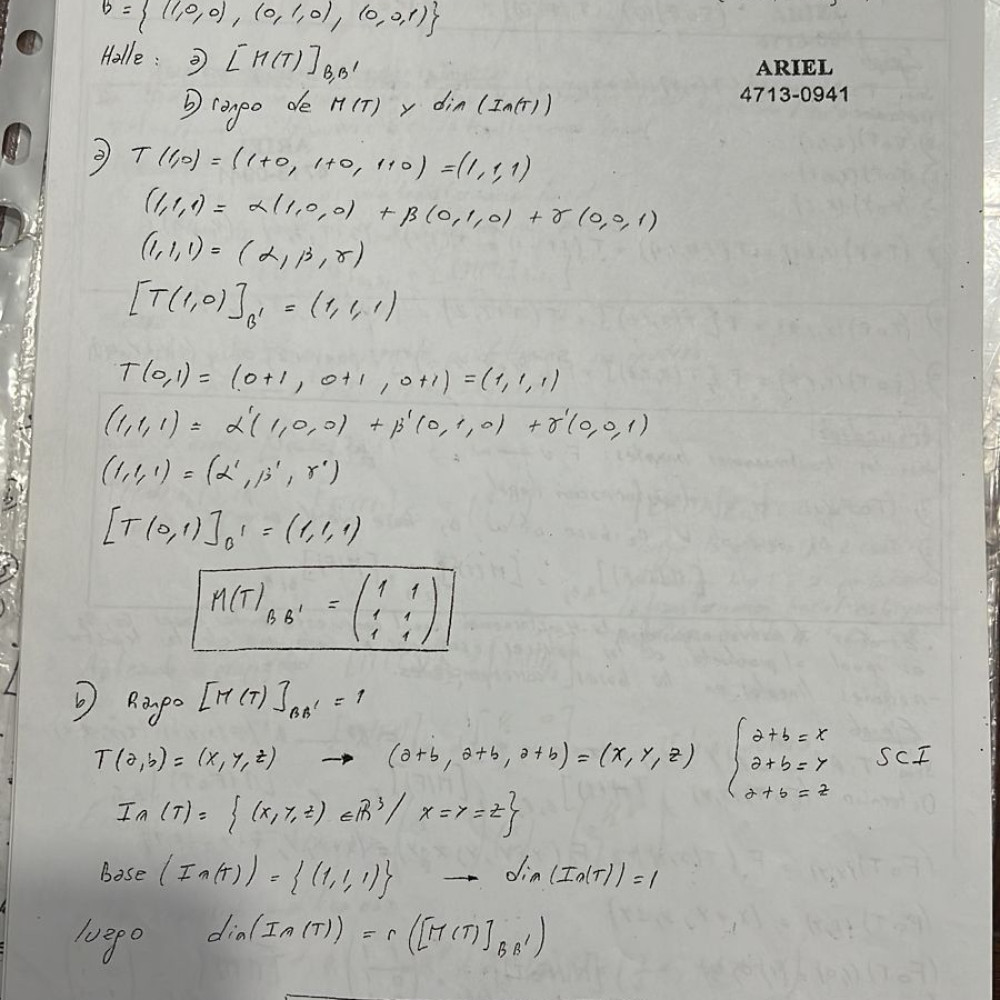 B = { (1,0,0), (0,1,0), (0,0,1)}
Halle: a) [M(T)]BB'
ARIEL
4713-0941
b) rango de M(T) y dim (Im(T))
a) T(1,0) = (1+0, 1+0, 1+0) = (1,1,1)
(1,1,1) = α(1,0,0) + β(0,1,0) + γ(0,0,1)
(1,1,1) = (α, β, γ)
[T(1,0)]B' = (1,1,1)
T(0,1) = (0+1, 0+1, 0+1) = (1,1,1)
(1,1,1) = α'(1,0,0) + β'(0,1,0) + γ'(0,0,1)
(1,1,1) = (α', β', γ')
[T(0,1)]B' = (1,1,1)
1 1
M(T)BB' = ( 1 1 )
1 1
b) Rango [M(T)]BB' = 1
a+b = x
T(a,b) = (x,y,z) → (a+b, a+b, a+b) = (x,y,z) { a+b = y SCI
a+b = z
Im(T) = { (x,y,z) ∈ ℝ³ / x=y=z}
Base (Im(T)) = {(1,1,1)} → dim(Im(T)) = 1
luego dim(Im(T)) = r([M(T)]BB')